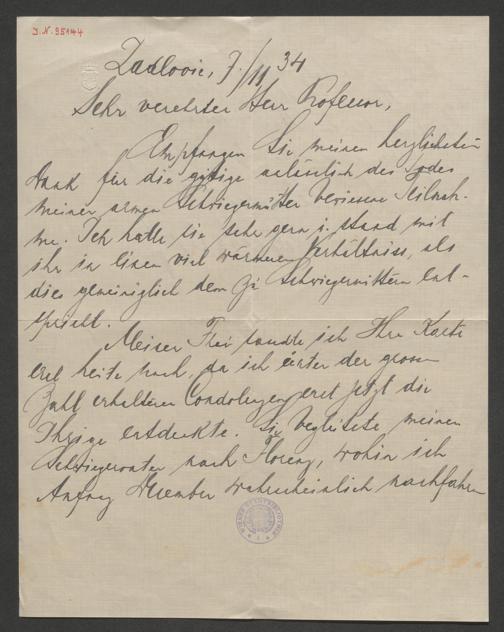 J.N. 95144
Zdislavic, 7./11 34
Sehr verehrter Herr Professor,
Empfangen Sie meinen herzlichsten
Dank für die gütige anlässlich des Todes
meiner armen Schwiegermutter bewiesene Teilnah-
me. Ich hatte sie sehr gern u. stand mit
ihr in einem viel wärmeren Verhältniss, als
dies gemeiniglich dem zu Schwiegermüttern ent-
spricht.
Meiner Frau sandte ich Ihre Karte
erst heute nach, da ich unter der grossen
Zahl erhaltener Condolenzen erst jetzt die
Ihrige entdeckte. Sie begleitete meinen
Schwiegervater nach Florenz, wohin ich
Anfang Dezember wahrscheinlich nachfahre